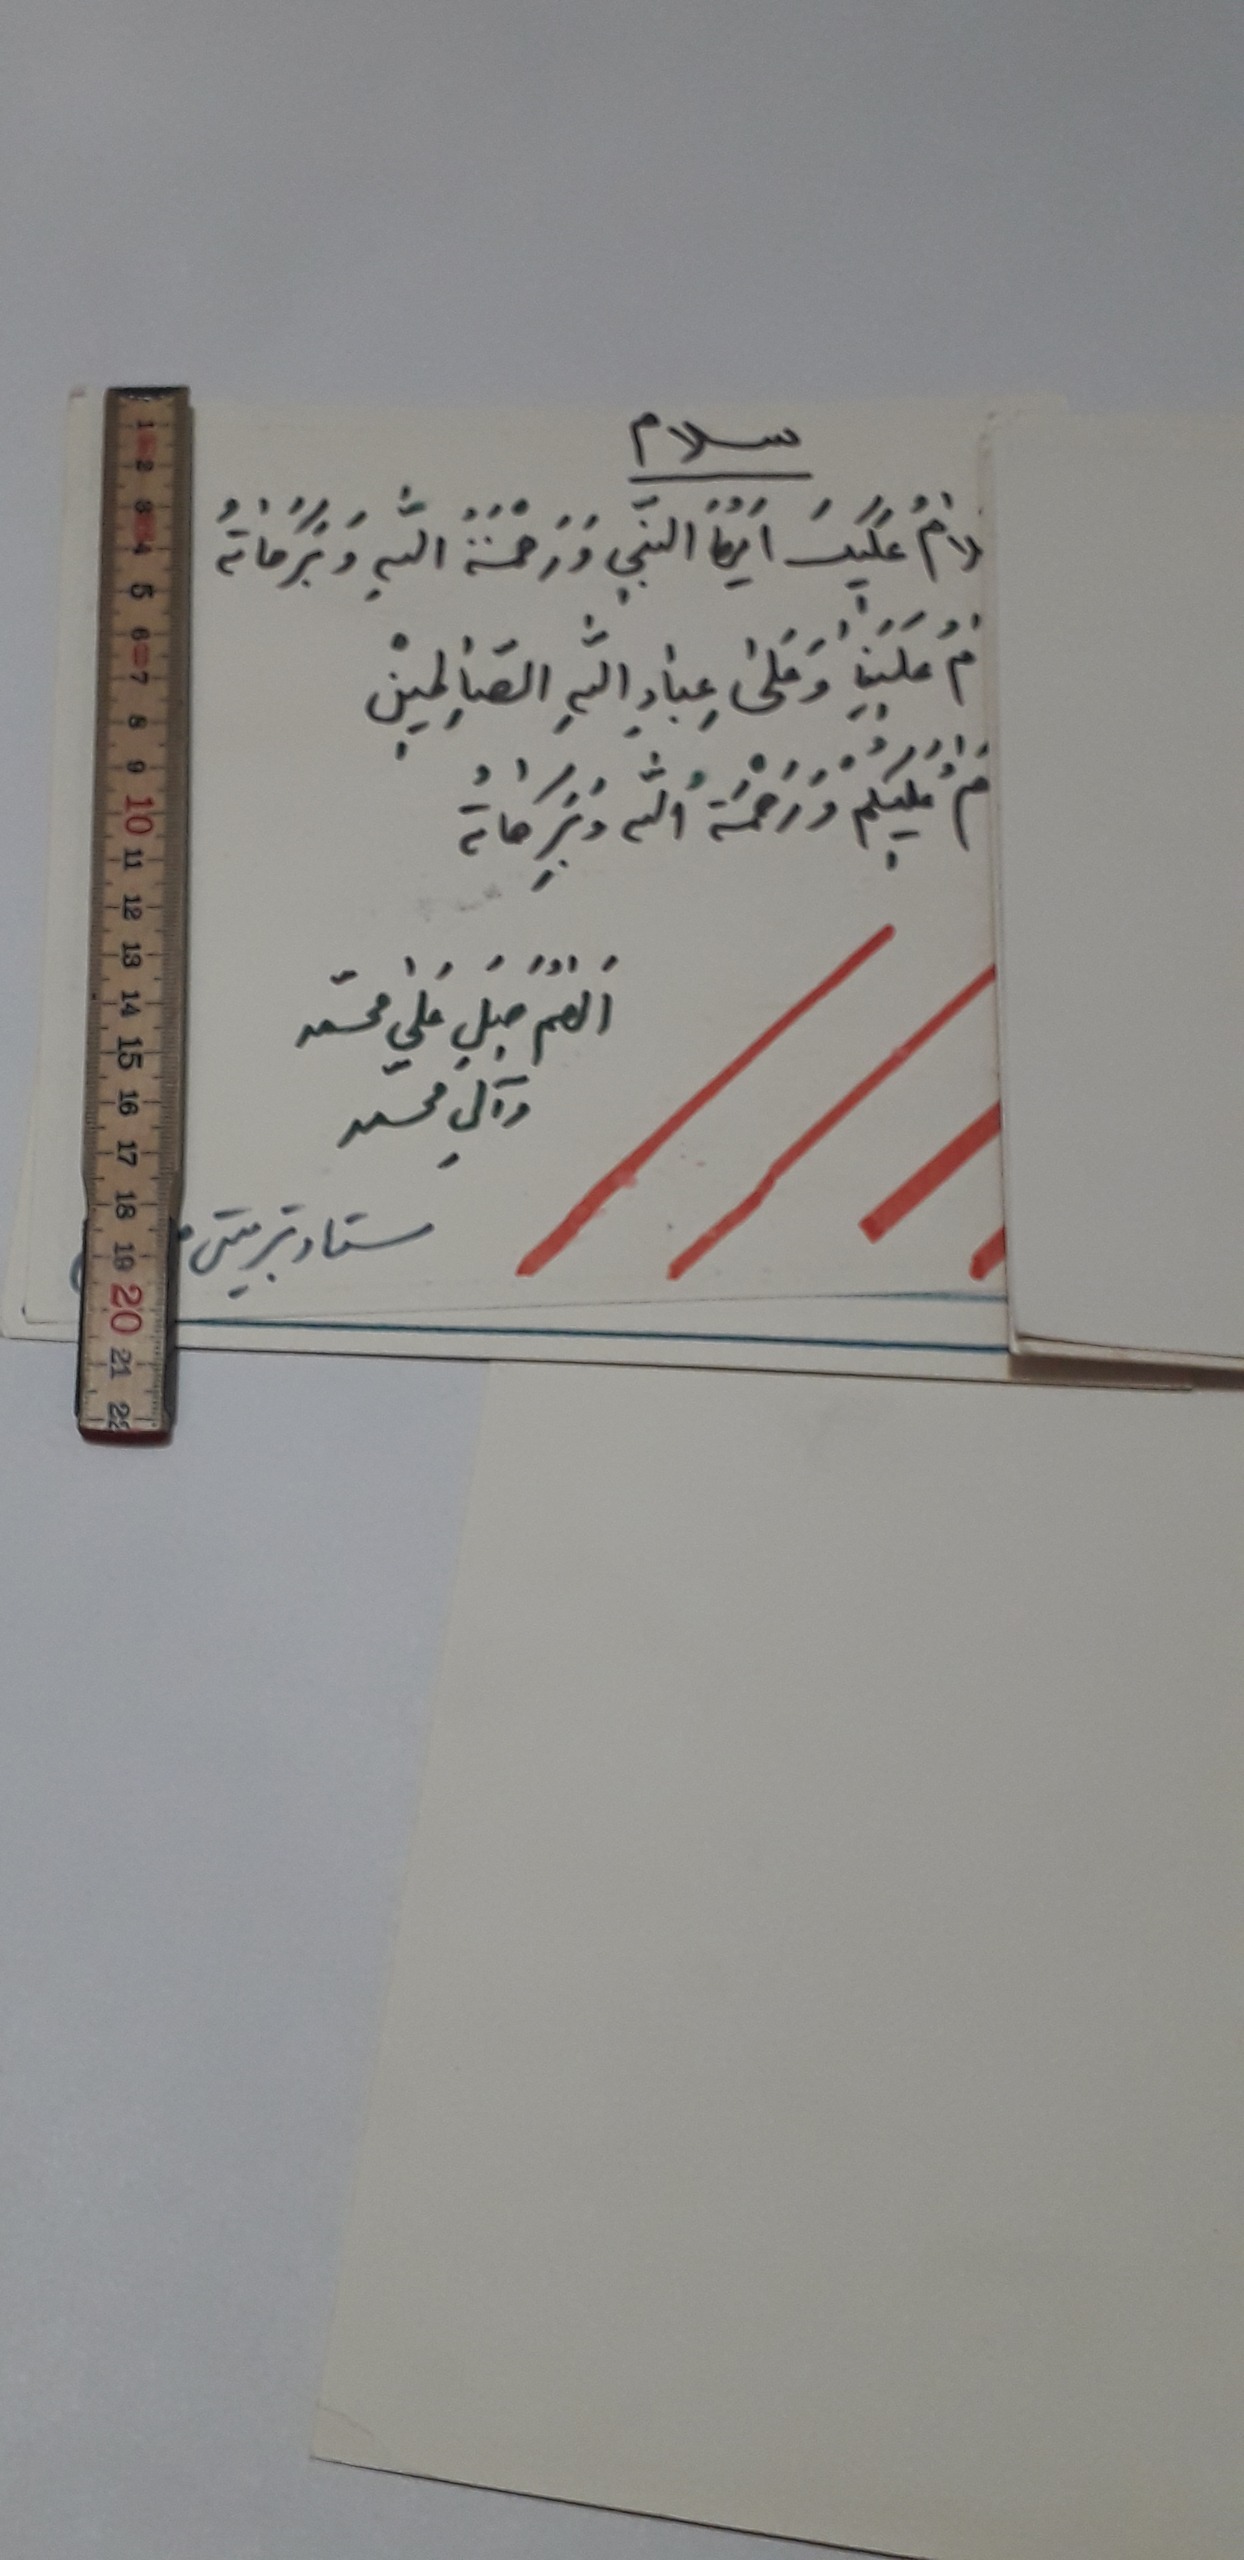 سلام
لامُ عَلَيْكَ اَيُّهَا النَّبِي وَرَحْمَةُ اللّهِ وَبَرَكاتُهُ
مُ عَلَيْنا وَعَلىٰ عِبادِ اللّهِ الصّالِحينْ
مُ عَلَيْكُمْ وَرَحْمَةُ اللّهِ وَبَرَكاتُهُ
اَللّهُمَّ صَلِ عَلي محمّد
وآلِ محمد
ستاد تربیتی
1 2 3 4 5 6 7 8 9 10 11 12 13 14 15 16 17 18 19 20 21 22